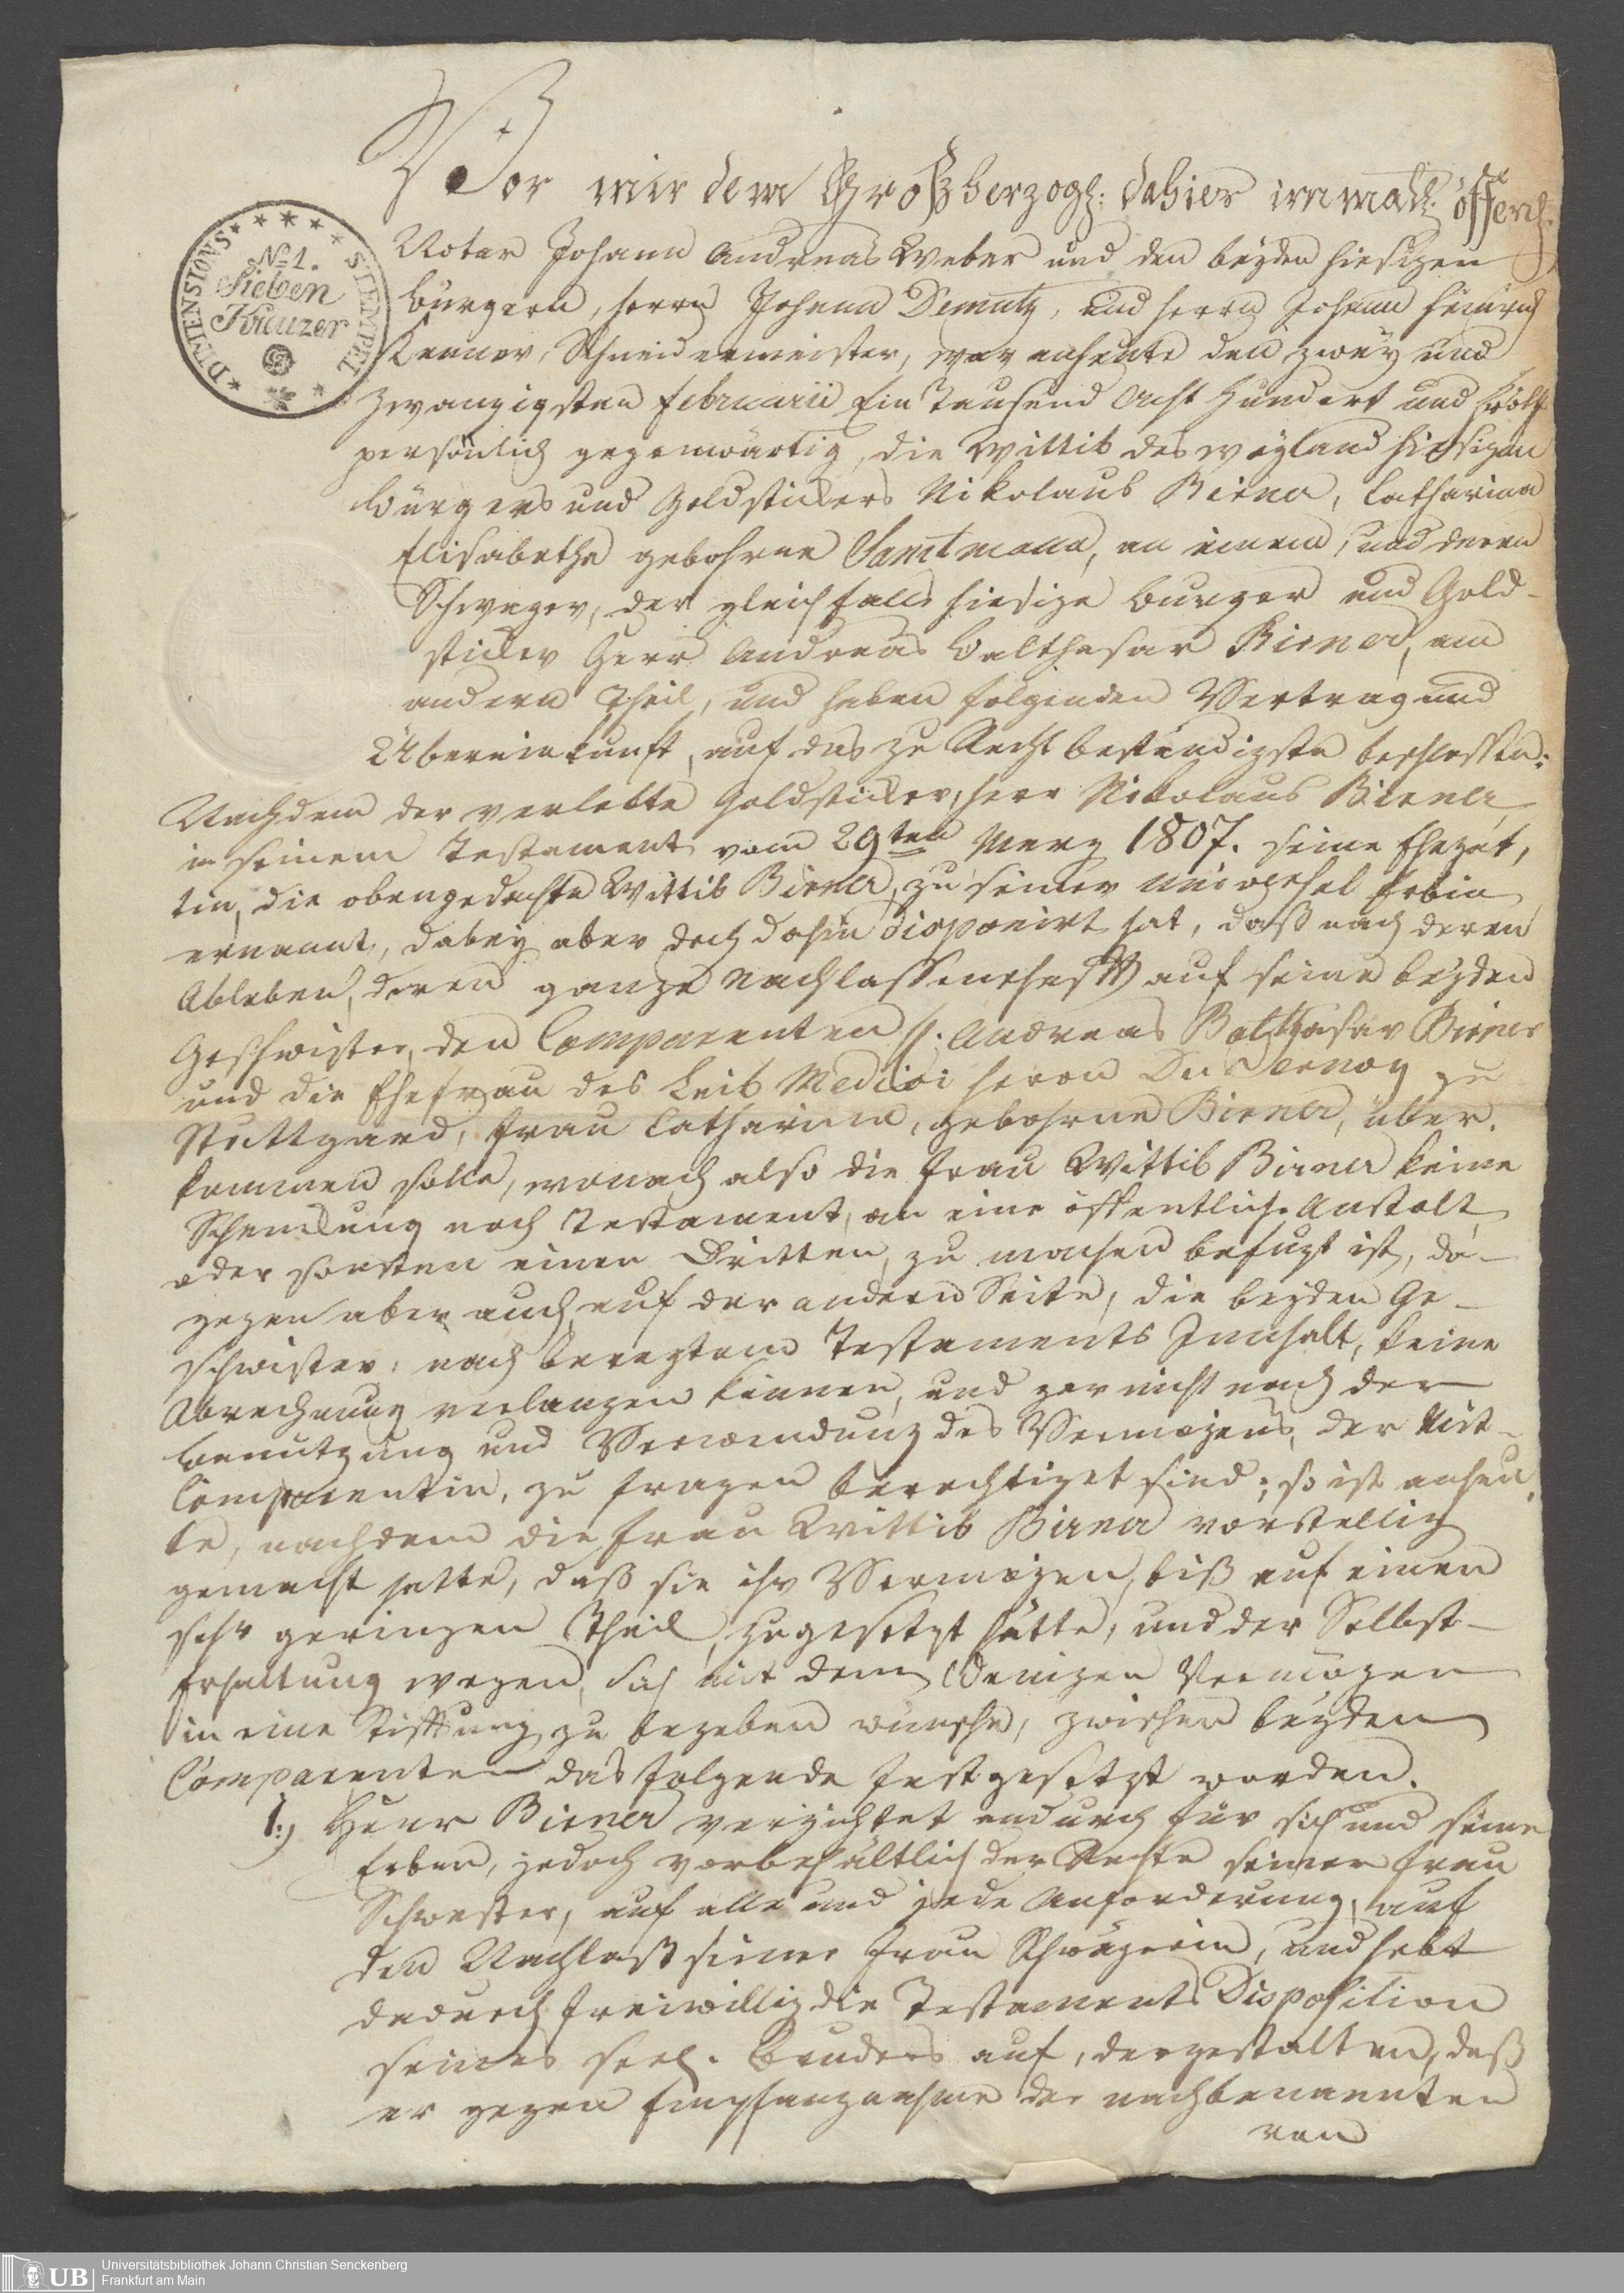 Vor mir dem Großherzogl: dahier immatr: öffentl.
Notar Johann Andreas Weber und den beyden hiesigen
Burgern, Herrn Johann Demuth, und Herrn Johann Heinrich
Schneidermeister, war anheute den zwey und
zwanzigsten Februarii Ein Tausend Acht Hundert und zwölf
persönlich gegenwärtig, die Wittib des weyland hiesigen
Bürgers und Goldstickers Nikolaus Birner, Catharina
Elisabetha gebohrne Samtmann, an einem, und deren
Schwager, der gleichfalls hiesige Burger und Gold-
sticker Herr Andreas Balthasar Birner, am
andern Theil, und haben folgenden Vertrag und
Übereinkunft, auf das zu Recht beständigste beschlossen:
Nachdem der verlebte Goldsticker, Herr Nikolaus Birner,
in seinem Testament vom 29ten Merz 1807. seine Ehegat,
tin, die obengedachte Wittib Birner, zu seiner Universal Erbin
ernannt, dabey aber doch dahin disponirt hat, daß nach deren
Ableben, deren ganze Nachlassenschafft auf seine beyden
Geschwister, den Comparenten H. Andreas Balthasar Birner
und die Ehefrau des Leib Medici Herrn Du Vernoy zu
Stuttgard, Frau Catharina, gebohrne Birner, über,
kommen solle, wonach also die Frau Wittib Birner keine
Schenkung noch Testament, an eine öffentliche Anstalt
oder sonsten einen Dritten, zu machen befugt ist, da-
gegen aber auch auf der andern Seite, die beyden Ge-
schwister, nach beregtem Testaments Innhalt, keine
Abrechnung verlangen können, und gar nicht nach der
Benutzung und Verwendung des Vermögens, der Mit-
Comparentin, zu fragen berechtiget sind; so ist anheu,
te, nachdem die Frau Wittib Birner vorstellig
gemacht hatte, daß sie ihr Vermögen, biß auf einen
sehr geringen Theil, zugesetzt hätte, und der Selbst-
Erhaltung wegen, sich mit dem wenigen Vermögen
in eine Stiftung zu begeben wünsche, zwischen beyden
Comparenten das folgende festgesetzt worden.
1:) Herr Birner verzichtet andurch für sich und seine
Erben, jedoch vorbehältlich der Rechte seiner Frau
Schwester, auf alle und jede Anforderung, auf
den Nachlaß seiner Frau Schwägerin, und hebt
dadurch freiwillig die Testaments Disposition
seines seel. Bruders auf, dergestalten, daß
er gegen Empfangnahme der nachbenannten
von
DIMENSIONS STEMPEL
No 1.
Sieben
Kreuzer
UB Universitätsbibliothek Johann Christian Senckenberg
Frankfurt am Main